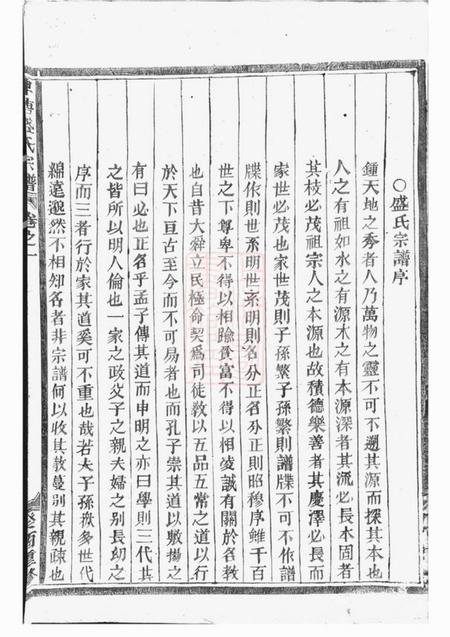 ○盛氏宗譜序
鍾天地之秀者人乃萬物之靈不可不遡其源而探其本也
人之有祖如水之有源木之有本源深者其流必長本固者
其枝必茂祖宗人之本源也故積德樂善者其慶澤必長而
家世必茂也家世茂則子孫繁子孫繁則譜牒不可不依譜
牒依則世系明世系明則名分正名分正則昭穆序雖千百
世之下尊卑不得以相踰貧富不得以相凌誠有關於名教
也自昔大舜立民極命契爲司徒敎以五品五常之道以行
於天下亘古至今而不可易者也而孔子崇其道以敷揚之
有曰必也正名乎孟子傳其道而申明之亦曰學則三代其
之皆所以明人倫也一家之政父子之親夫婦之别長幼之
序而三者行於家其道奚可不重也哉若夫子孫衆多世代
綿遠邈然不相知名者非宗譜何以收其散蔓别其親疎也
盛氏宗譜 卷之一